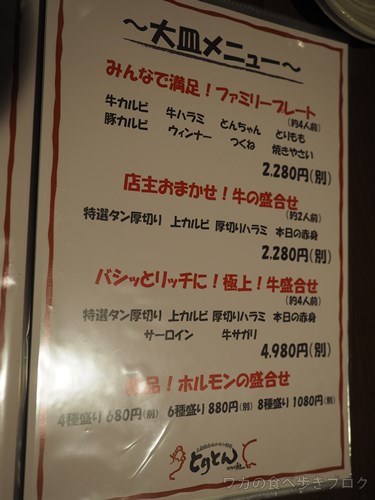 ～大皿メニュー～
みんなで満足！ファミリープレート
(約4人前)
牛カルビ 牛ハラミ とんちゃん とりもも
豚カルビ ウィンナー つくね 焼きやさい
2.280円(別)
店主おまかせ！牛の盛合せ
(約2人前)
特選タン厚切り 上カルビ 厚切りハラミ 本日の赤身
2.280円(別)
バシッとリッチに！極上！牛盛合せ
(約4人前)
特選タン厚切り 上カルビ 厚切りハラミ 本日の赤身
サーロイン 牛サガリ
4.980円(別)
品！ホルモンの盛合せ
4種盛り 680円(別) 6種盛り 880円(別) 8種盛り 1080円(別)
とりとん
ワカの食べ歩きブログ